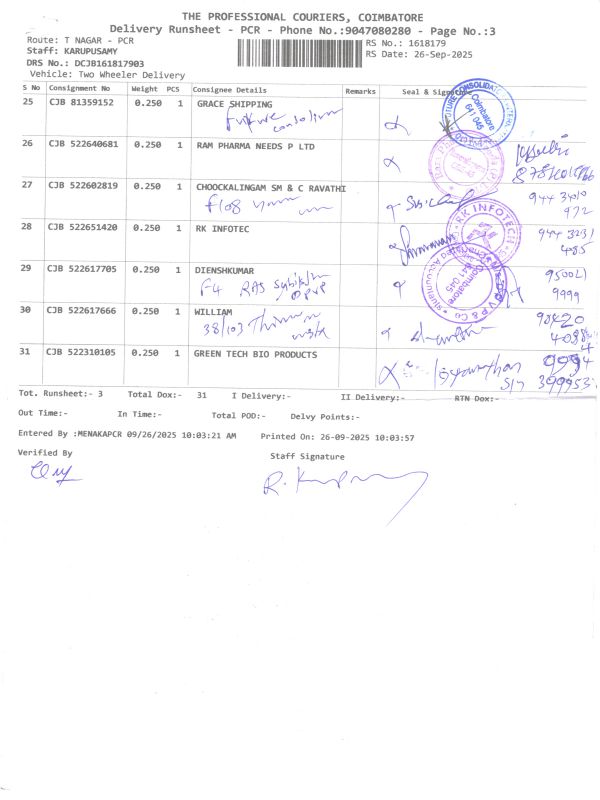 THE PROFESSIONAL COURIERS, COIMBATORE
Delivery Runsheet - PCR - Phone No.:9047080280 - Page No.:3
Route: T NAGAR - PCR
RS No.: 1618179
Staff: KARUPUSAMY
RS Date: 26-Sep-2025
DRS No.: DCJB161817903
Vehicle: Two Wheeler Delivery
S No Consignment No Weight PCS Consignee Details Remarks Seal & Signature
25 CJB 81359152 0.250 1 GRACE SHIPPING
Future
Coimbatore
641 045
26 CJB 522640681 0.250 1 RAM PHARMA NEEDS P LTD
27 CJB 522602819 0.250 1 CHOOCKALINGAM SM & C RAVATHI
F108
944 3410
972
28 CJB 522651420 0.250 1 RK INFOTEC
RK INFOTECH
944 3231
485
29 CJB 522617705 0.250 1 DIENSHKUMAR
F4 RAS
95002
9999
Coimbatore
641 045
V P & Co
30 CJB 522617666 0.250 1 WILLIAM
38/103
90420
31 CJB 522310105 0.250 1 GREEN TECH BIO PRODUCTS
9994
399953
Tot. Runsheet:- 3 Total Dox:- 31 I Delivery:- II Delivery:- RTN Dox:-
Out Time:- In Time:- Total POD:- Delvy Points:-
Entered By :MENAKAPCR 09/26/2025 10:03:21 AM Printed On: 26-09-2025 10:03:57
Verified By Staff Signature